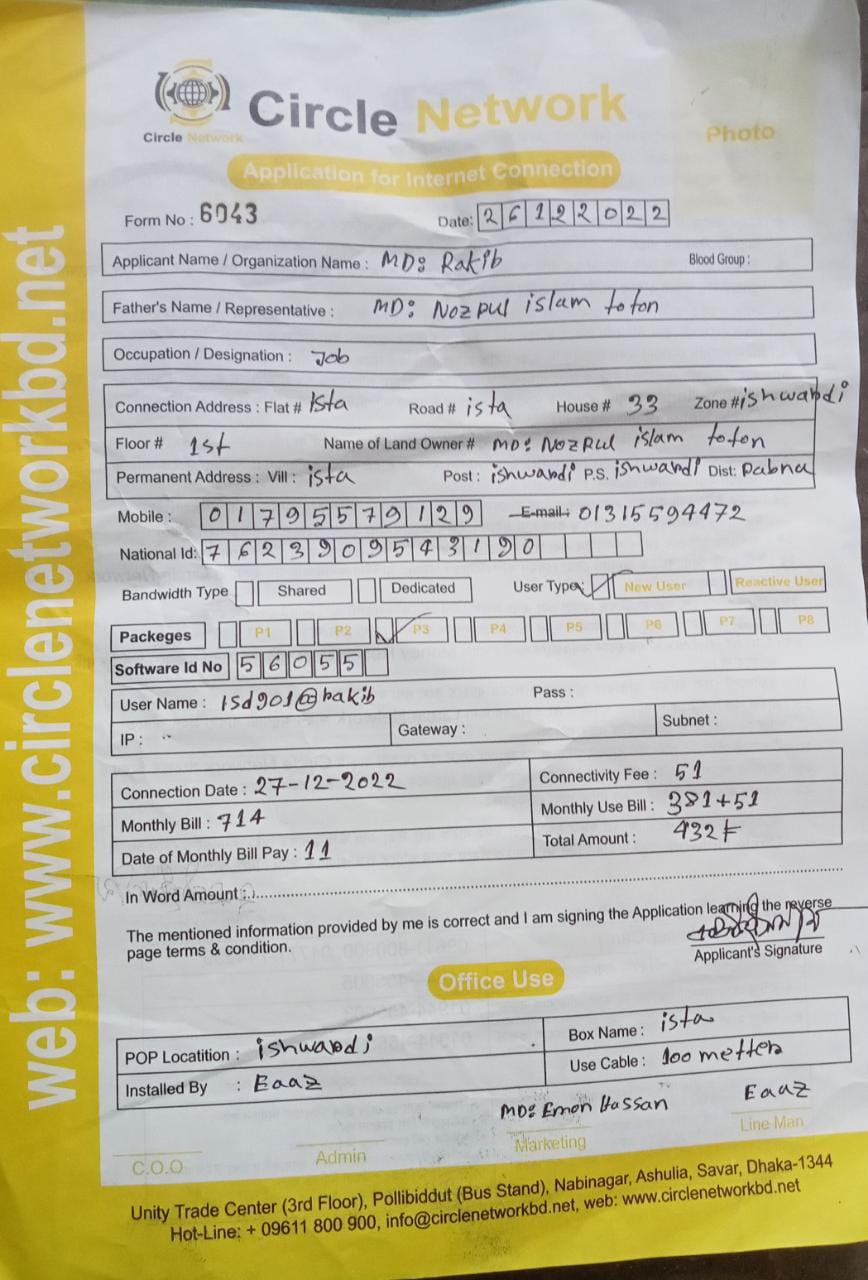 Circle Network
Circle Network
Photo
Application for Internet Connection
Form No : 6043
Date: 26122022
Applicant Name / Organization Name : MD: Rakib Blood Group :
Father's Name / Representative : MD: Nozrul islam toton
Occupation / Designation : Job
Connection Address : Flat # ista Road # ista House # 33 Zone # ishwardi
Floor # 1st Name of Land Owner # MD: Nozrul islam toton
Permanent Address : Vill : ista Post : ishwardi P.S. ishwardi Dist: Pabna
Mobile : 01795579129 E-mail : 01315594472
National Id: 7623909543190
Bandwidth Type Shared Dedicated User Type New User Reactive User
Packeges P1 P2 P3 P4 P5 P6 P7 P8
Software Id No 56055
User Name : isd901@rakib Pass :
IP : Gateway : Subnet :
Connection Date : 27-12-2022 Connectivity Fee : 51
Monthly Bill : 714 Monthly Use Bill : 381+51
Date of Monthly Bill Pay : 11 Total Amount : 432
In Word Amount :
The mentioned information provided by me is correct and I am signing the Application learning the reverse
page terms & condition.
Applicant's Signature
Office Use
POP Locatition : ishwardi Box Name : ista
Installed By : Eaaz Use Cable : 100 metter
MD: Emon Hassan Eaaz
C.O.O Admin Marketing Line Man
Unity Trade Center (3rd Floor), Pollibiddut (Bus Stand), Nabinagar, Ashulia, Savar, Dhaka-1344
Hot-Line: + 09611 800 900, info@circlenetworkbd.net, web: www.circlenetworkbd.net
web: www.circlenetworkbd.net